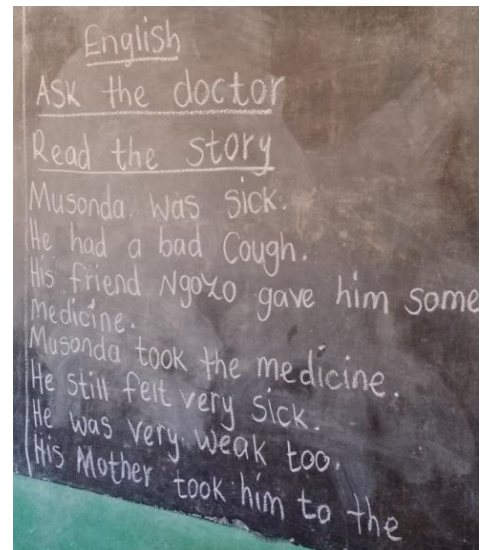 English
ASK the doctor
Read the story
Musonda was sick.
He had a bad Cough.
His friend Ngozo gave him some
medicine.
Musonda took the medicine.
He still felt very sick.
He was very weak too.
His Mother took him to the